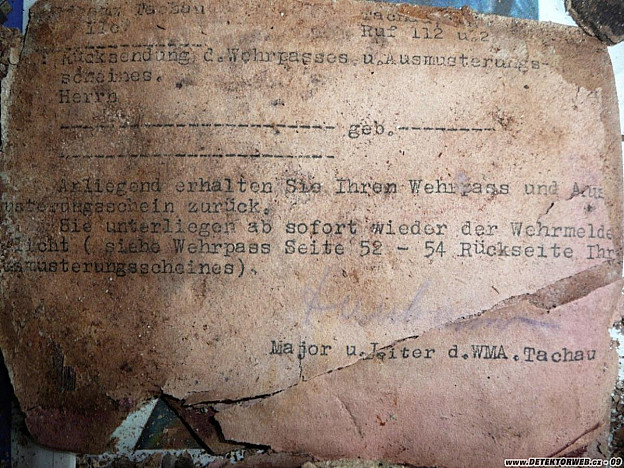 Tachau
IIc
Ruf 112 u.2
: Rücksendung d.Wehrpasses u.Ausmusterungs-
scheines.
Herrn
------------------------ geb.---------
------------------------
Anliegend erhalten Sie Ihren Wehrpass und Aus
usterungsschein zurück.
Sie unterliegen ab sofort wieder der Wehrmelde
licht ( siehe Wehrpass Seite 52 - 54 Rückseite Ihr
usmusterungsscheines).
Major u.Leiter d.WMA.Tachau
www.DETEKTORWEB.cz - 09